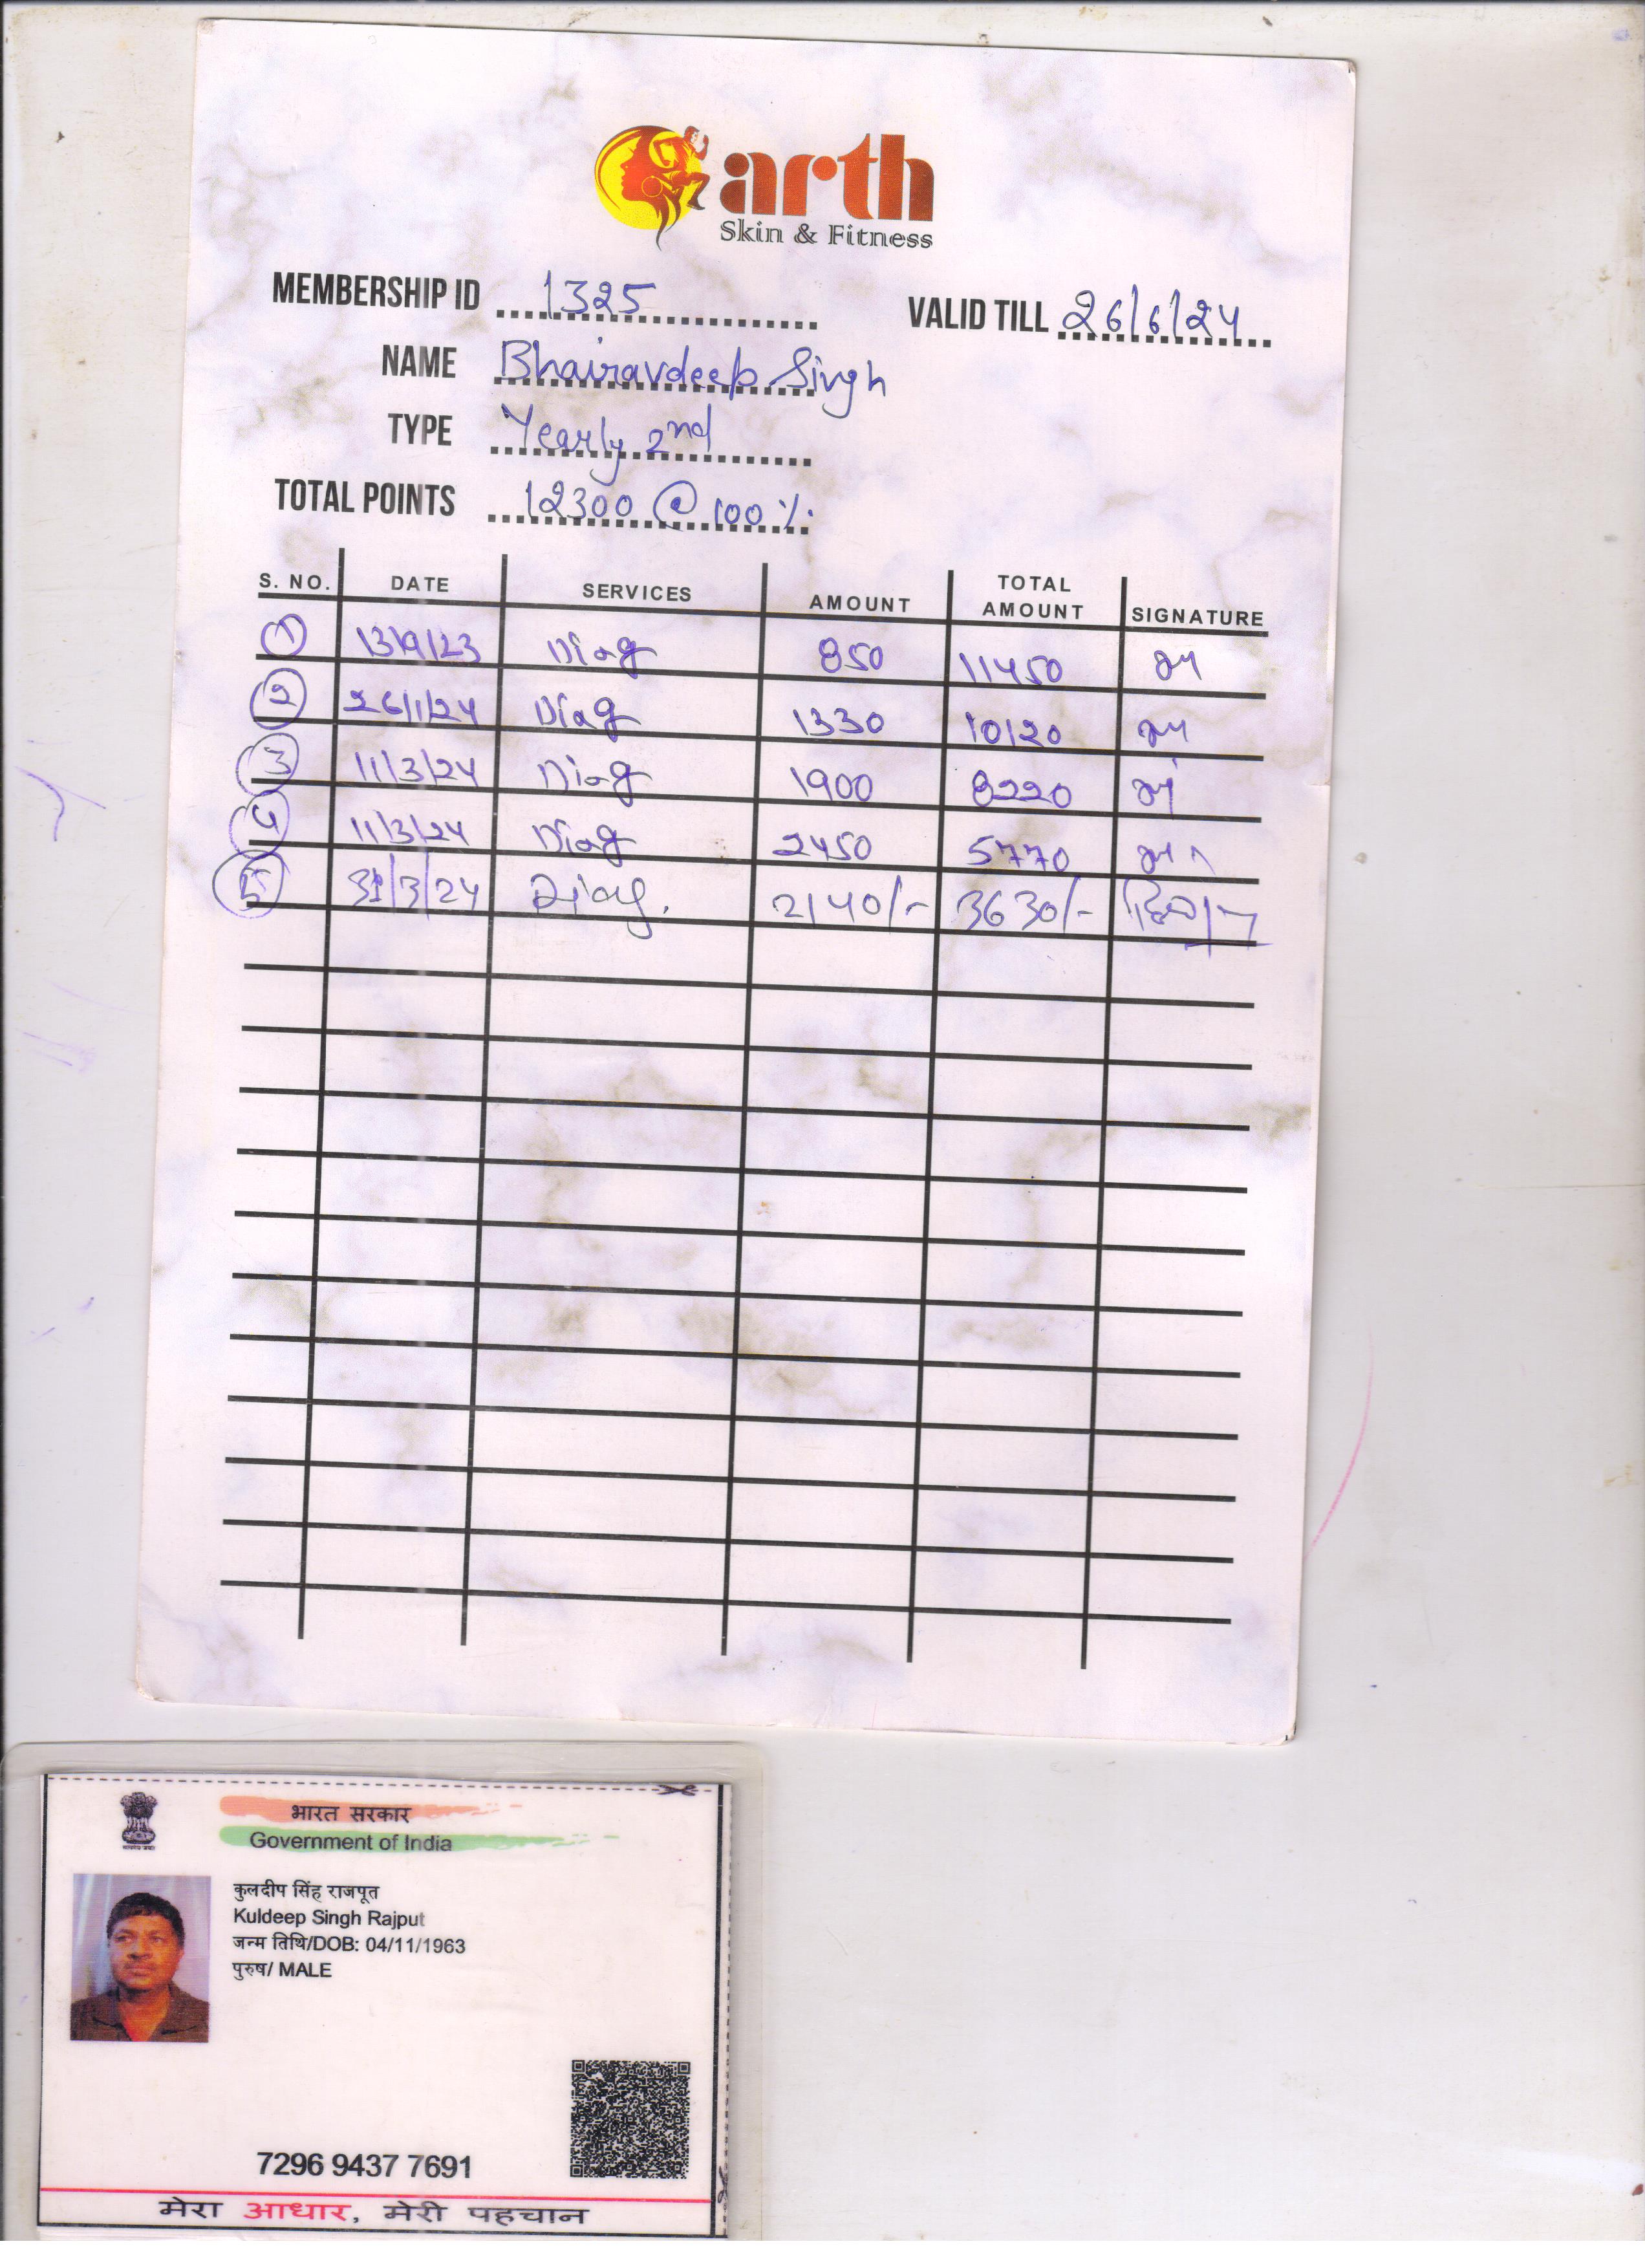 arth
Skin & Fitness
MEMBERSHIP ID 1325 VALID TILL 26/6/24
NAME Bhairavdeep Singh
TYPE Yearly 2nd
TOTAL POINTS 12300 @ 100 %
S. NO. DATE SERVICES AMOUNT TOTAL AMOUNT SIGNATURE
1 13/9/23 Diag 850 11450
2 26/1/24 Diag 1330 10120
3 11/3/24 Diag 1900 8220
4 11/3/24 Diag 2450 5770
5 31/3/24 Diag. 2140/- 3630/-
भारत सरकार
Government of India
कुलदीप सिंह राजपूत
Kuldeep Singh Rajput
जन्म तिथि/DOB: 04/11/1963
पुरुष/ MALE
7296 9437 7691
मेरा आधार, मेरी पहचान